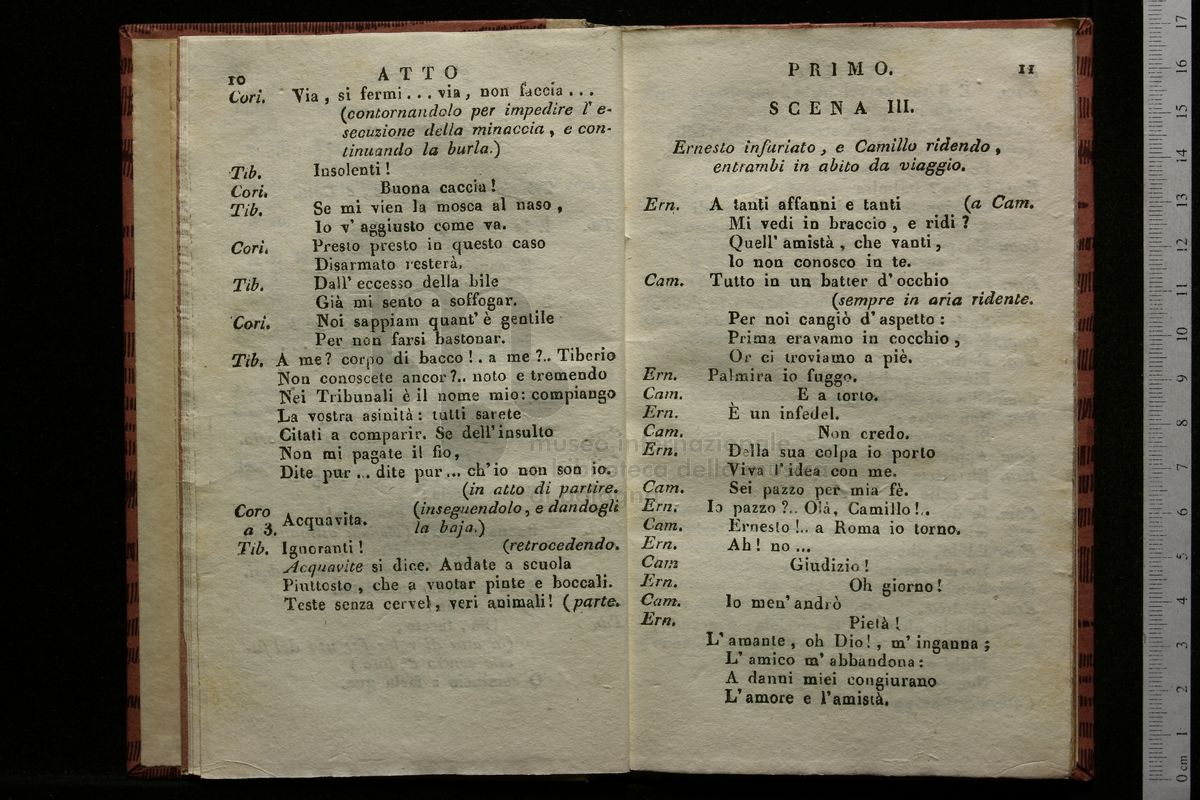 10
ATTO
Cori. Via, si fermi... via, non faccia...
(contornandolo per impedire l' e-
secuzione della minaccia, e con-
tinuando la burla.)
Tib. Insolenti!
Cori. Buona caccia!
Tib. Se mi vien la mosca al naso,
Io v' aggiusto come va.
Cori. Presto presto in questo caso
Disarmato resterà.
Tib. Dall' eccesso della bile
Già mi sento a soffogar.
Cori. Noi sappiam quant' è gentile
Per non farsi bastonar.
Tib. A me? corpo di bacco!.. a me?.. Tiberio
Non conoscete ancor?.. noto e tremendo
Nei Tribunali è il nome mio: compiango
La vostra asinità: tutti sarete
Citati a comparir. Se dell' insulto
Non mi pagate il fio,
Dite pur... dite pur... ch'io non son io.
(in atto di partire.
Coro a 3. Acquavita. (inseguendolo, e dandogli
la baja.)
Tib. Ignoranti! (retrocedendo.
Acquavite si dice. Andate a scuola
Piuttosto, che a vuotar pinte e boccali.
Teste senza cervel, veri animali! (parte.
PRIMO. 11
SCENA III.
Ernesto infuriato, e Camillo ridendo,
entrambi in abito da viaggio.
Ern. A tanti affanni e tanti (a Cam.
Mi vedi in braccio, e ridi?
Quell' amistà, che vanti,
Io non conosco in te.
Cam. Tutto in un batter d' occhio
(sempre in aria ridente.
Per noi cangiò d' aspetto:
Prima eravamo in cocchio,
Or ci troviamo a piè.
Ern. Palmira io fuggo.
Cam. E a torto.
Ern. È un infedel.
Cam. Non credo.
Ern. Della sua colpa io porto
Viva l' idea con me.
Cam. Sei pazzo per mia fè.
Ern. Io pazzo?.. Olà, Camillo!..
Cam. Ernesto!.. a Roma io torno.
Ern. Ah! no...
Cam Giudizio!
Ern. Oh giorno!
Cam. Io men' andrò
Ern. Pietà!
L' amante, oh Dio!, m' inganna;
L' amico m' abbandona:
A danni miei congiurano
L' amore e l'amistà.
museo internazionale
0 cm 1 2 3 4 5 6 7 8 9 10 11 12 13 14 15 16 17